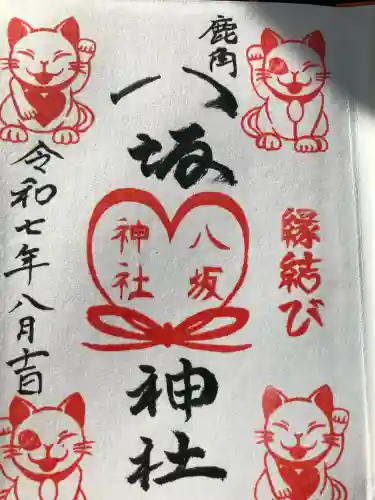 鹿角
八坂
神社
八坂
神社
縁結び
令和七年八月十一日